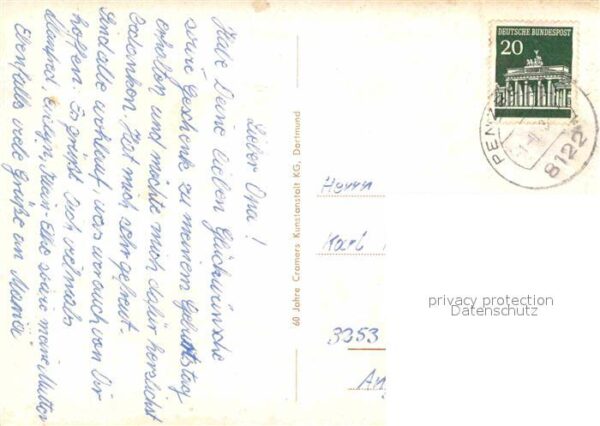 Lieber Opa!
Habe Deine lieben Glückwünsche
sowie Geschenk zu meinem Geburtstag
erhalten und möchte mich dafür herzlichst
bedanken. Hat mich sehr gefreut.
Sind alle wohlauf, was wir auch von Dir
hoffen. Es grüßt Dich vielmals
Enkelin, sowie meine Mutter
Ebenfalls viele Grüße an Maria
60 Jahre Cramers Kunstanstalt KG, Dortmund
DEUTSCHE BUNDESPOST
20
PENZ
8122
Herrn
Karl
3353
privacy protection
Datenschutz